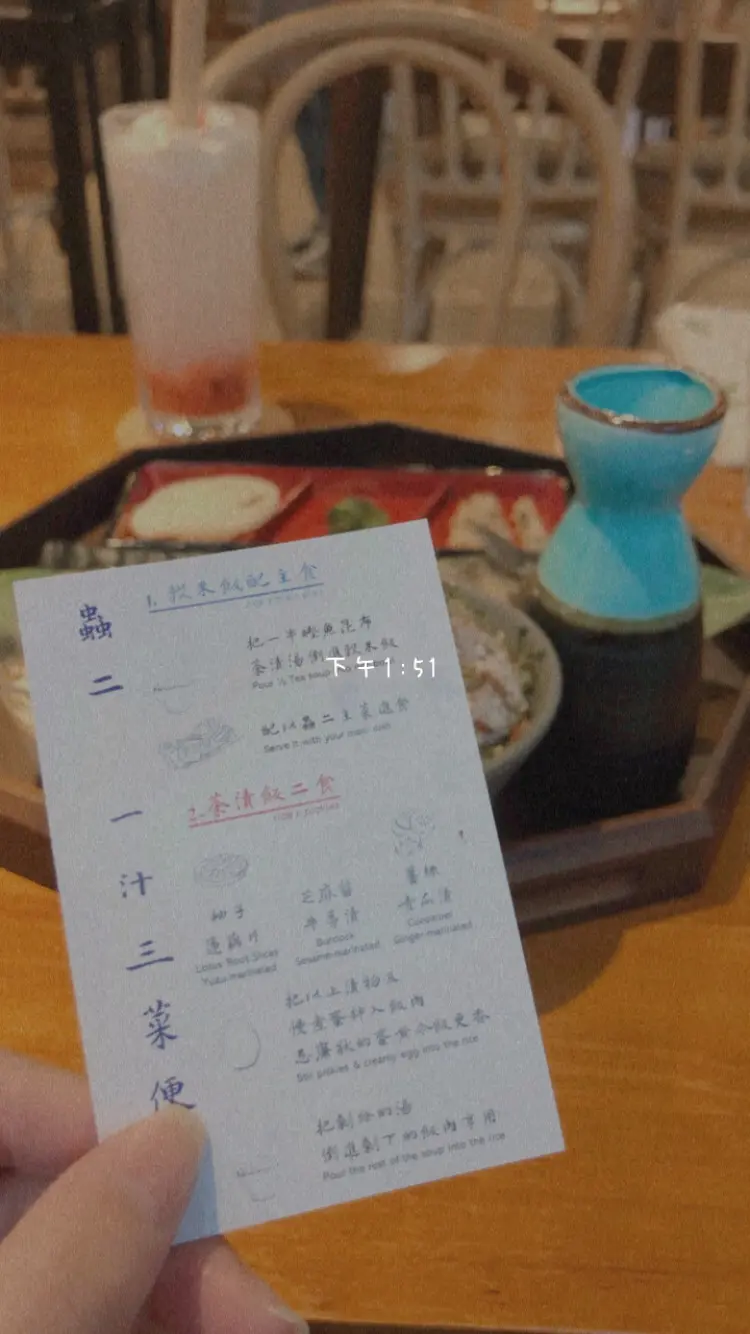 蟲二一汁三菜便
1. 穀米飯配主食
把一半鰹魚昆布
茶漬湯倒進穀米飯
Pour ½ Tea soup
下午1:51
配以蟲二主菜進食
Serve it with your main dish
2. 茶漬飯二食
柚子
蓮藕片
Lotus Root Slices
Yuzu-marinated
芝麻醬
牛蒡漬
Burdock
Sesame-marinated
薑絲
青瓜漬
Cucumber
Ginger-marinated
把以上漬物及
慢煮蛋拌入飯內
忌廉狀的蛋黃令飯更香
Stir pickles & creamy egg into the rice
把剩餘的湯
倒進剩下的飯內享用
Pour the rest of the soup into the rice